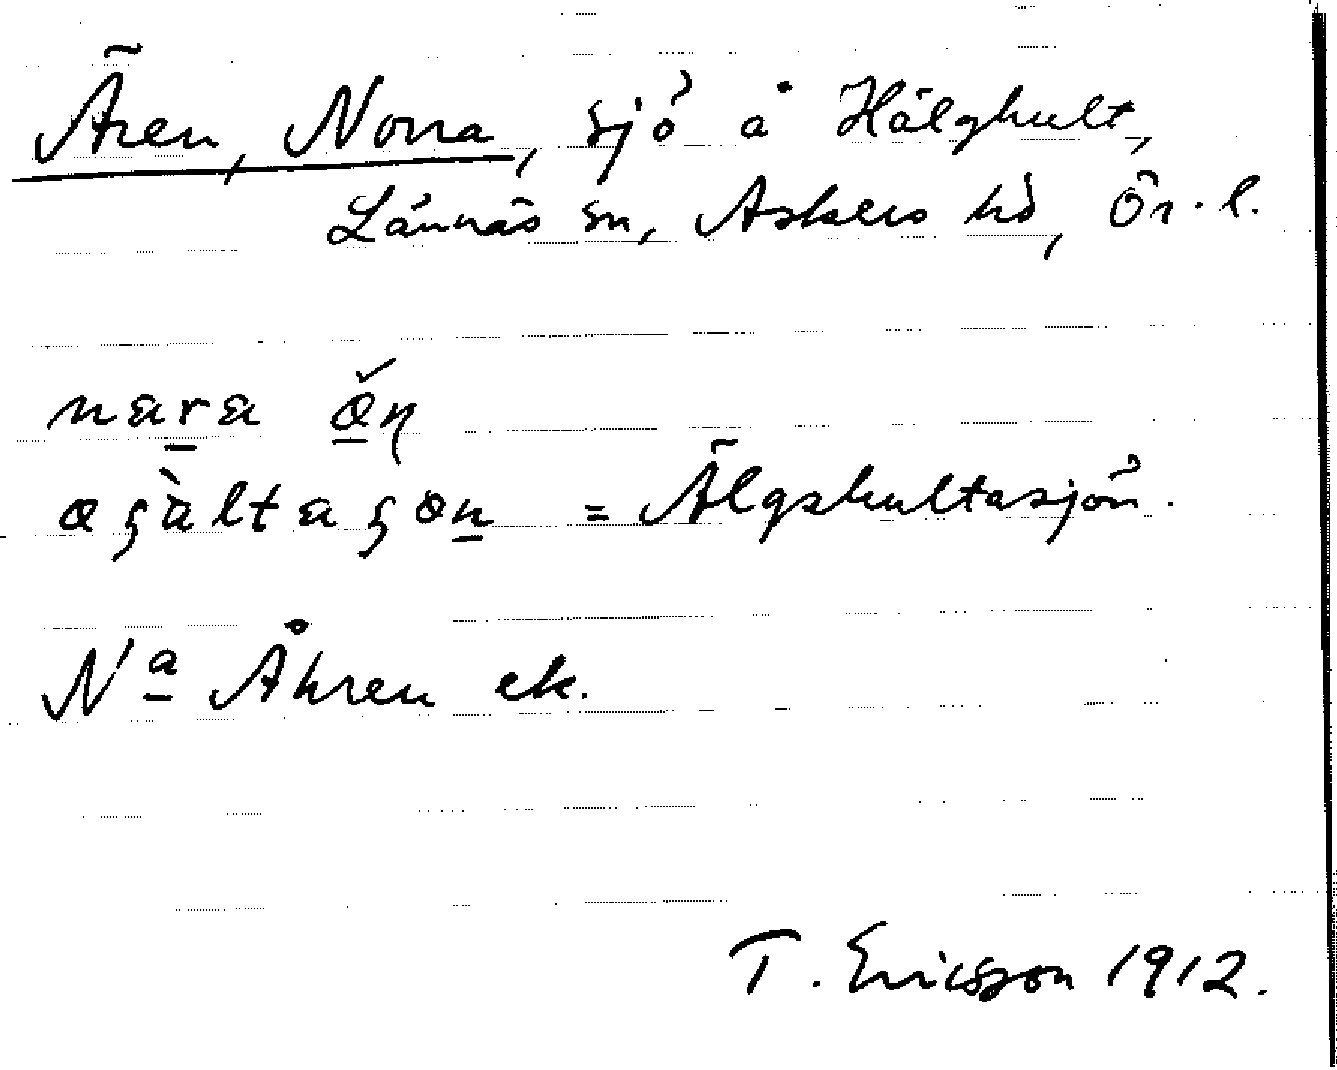 Ären, Norra, sjö å Hälghult,
Lännäs sn, Askers hd, Ör. l.
nara
= Älgshultasjön.
Na Åhren ek.
T. Ericsson 1912.